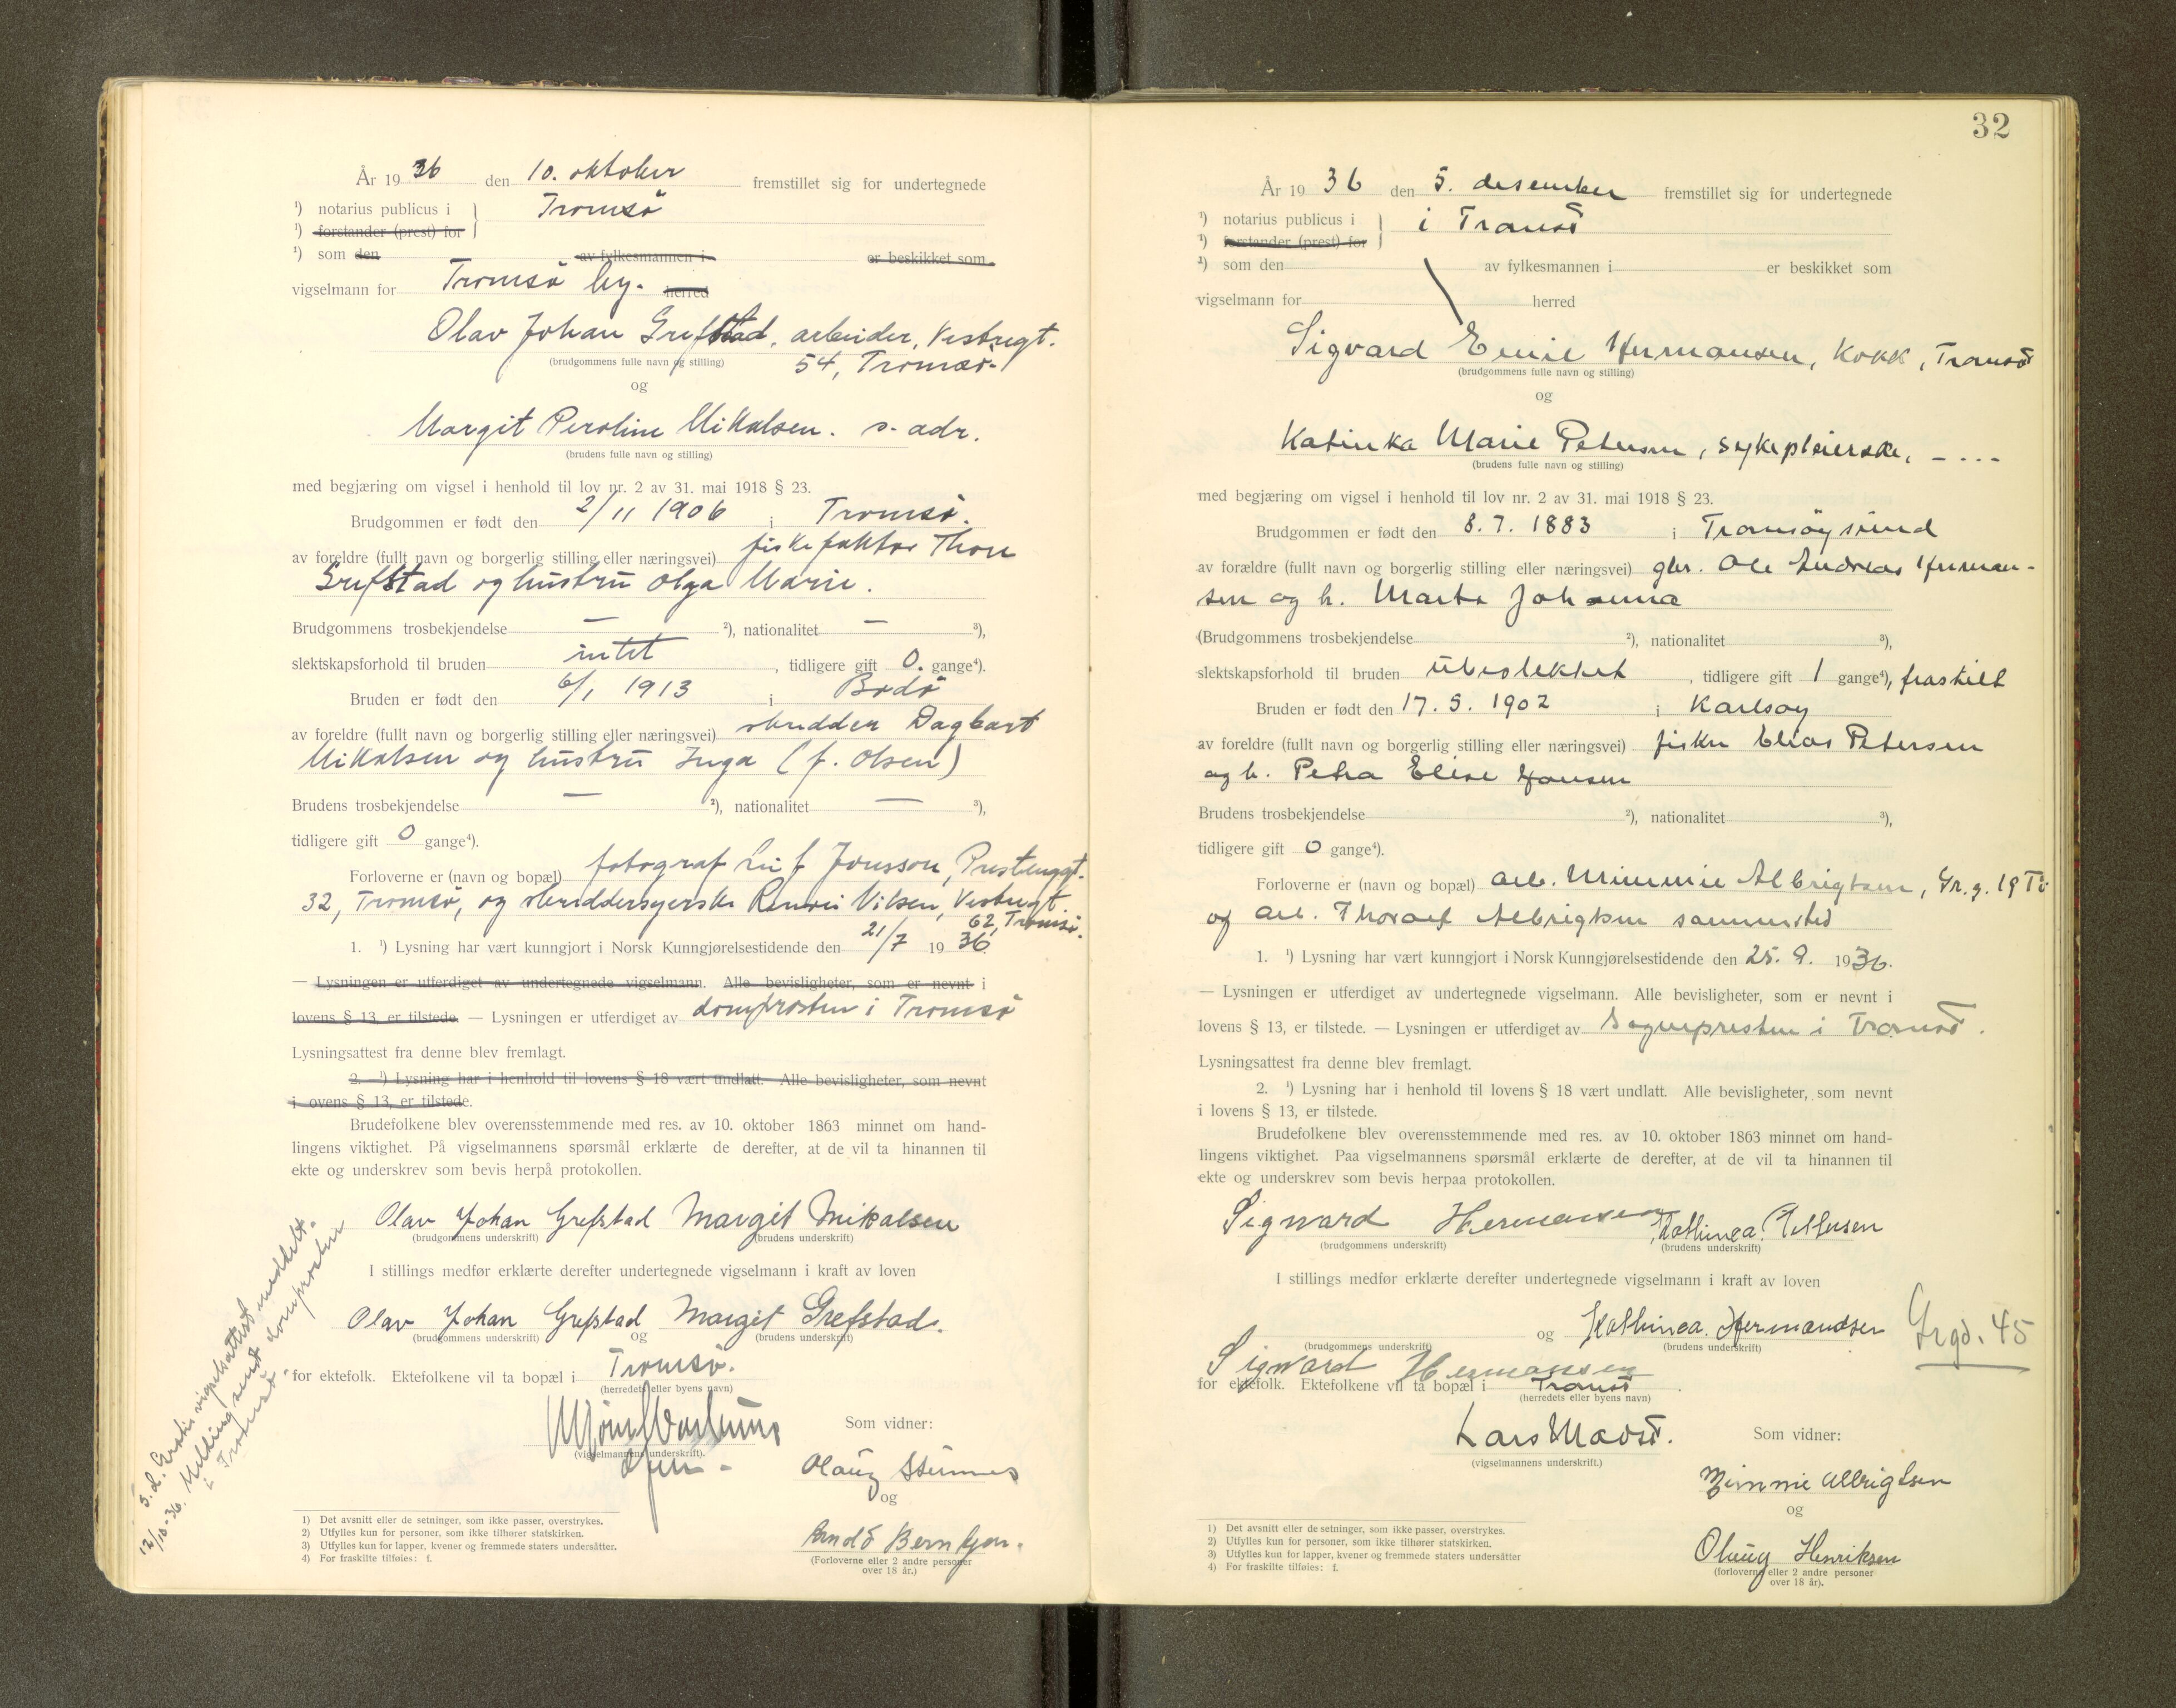 År 1936 den 10. oktober fremstillet sig for undertegnede
¹) notarius publicus i } Tromsö
¹) forstander (prest) for
¹) som den av fylkesmannen i er beskikket som
vigselmann for Tromsö by. herred
Olav Johan Grefstad, arbeider, Vestregt.
54, Tromsö.
(brudgommens fulle navn og stilling)
og
Margit Peroline Mikalsen. s. adr.
(brudens fulle navn og stilling)
med begjæring om vigsel i henhold til lov nr. 2 av 31. mai 1918 § 23.
Brudgommen er født den 2/11 1906 i Tromsö.
av foreldre (fullt navn og borgerlig stilling eller næringsvei) fiskefaktor Thore
Grefstad og hustru Olga Marie.
Brudgommens trosbekjendelse — ²), nationalitet — ³),
slektskapsforhold til bruden intet, tidligere gift 0. gange⁴).
Bruden er født den 6/1 1913 i Bodö
av foreldre (fullt navn og borgerlig stilling eller næringsvei) skredder Dagbart
Mikalsen og hustru Inga (f. Olsen)
Brudens trosbekjendelse — ²), nationalitet — ³),
tidligere gift 0 gange⁴).
Forloverne er (navn og bopæl) fotograf Leif Jonsson, Prestenggt.
32, Tromsö, og skreddersyerske Nilsen, Vestregt
62, Tromsö.
1. ¹) Lysning har vært kunngjort i Norsk Kunngjørelsestidende den 21/7 1936.
— Lysningen er utferdiget av undertegnede vigselmann. Alle bevisligheter, som er nevnt i
lovens § 13, er tilstede. — Lysningen er utferdiget av domprosten i Tromsö
Lysningsattest fra denne blev fremlagt.
2. ¹) Lysning har i henhold til lovens § 18 vært undlatt. Alle bevisligheter, som nevnt
i ovens § 13, er tilstede.
Brudefolkene blev overensstemmende med res. av 10. oktober 1863 minnet om hand-
lingens viktighet. På vigselmannens spørsmål erklærte de derefter, at de vil ta hinannen til
ekte og underskrev som bevis herpå protokollen.
Olav Johan Grefstad Margit Mikalsen
(brudgommens underskrift) (brudens underskrift)
I stillings medfør erklærte derefter undertegnede vigselmann i kraft av loven
Olav Johan Grefstad Margit Grefstad.
(brudgommens underskrift) og (brudens underskrift)
for ektefolk. Ektefolkene vil ta bopæl i Tromsö.
(herredets eller byens navn)
Som vidner:
(vigselmannens underskrift).
Olaug
og
Berntzen.
(Forloverne eller 2 andre personer
over 18 år.)
1) Det avsnitt eller de setninger, som ikke passer, overstrykes.
2) Utfylles kun for personer, som ikke tilhører statskirken.
3) Utfylles kun for lapper, kvener og fremmede staters undersåtter.
4) For fraskilte tilføies: f.
S. d. Gratis vigselsattest meddelt.
12/10-36. Melding sendt domprosten
i Tromsö.
32
År 1936 den 5. desember fremstillet sig for undertegnede
¹) notarius publicus i } i Tromsö
¹) forstander (prest) for
¹) som den av fylkesmannen i er beskikket som
vigselmann for herred
Sigvard Emil Hermansen, Kokk, Tromsö
(brudgommens fulle navn og stilling)
og
Katinka Marie Petersen, sykepleierske, - . . -
(brudens fulle navn og stilling)
med begjæring om vigsel i henhold til lov nr. 2 av 31. mai 1918 § 23.
Brudgommen er født den 8. 7. 1883 i Tromsöysund
av forældre (fullt navn og borgerlig stilling eller næringsvei) gbr. Ole Andreas Herman-
sen og h. Marta Johanna
(Brudgommens trosbekjendelse ²), nationalitet ³),
slektskapsforhold til bruden ubeslektet, tidligere gift 1 gange⁴), fraskilt
Bruden er født den 17. 5. 1902 i Karlsøy
av foreldre (fullt navn og borgerlig stilling eller næringsvei) fisker Elias Petersen
og h. Petra Elise Hansen
Brudens trosbekjendelse ²), nationalitet ³),
tidligere gift 0 gange⁴).
Forloverne er (navn og bopæl) arb. Mimmie Albrigtsen, Gr. g. 19 Tö
og arb. Thoralf Albrigtsen sammested
1. ¹) Lysning har vært kunngjort i Norsk Kunngjørelsestidende den 25. 9. 1936.
— Lysningen er utferdiget av undertegnede vigselmann. Alle bevisligheter, som er nevnt i
lovens § 13, er tilstede. — Lysningen er utferdiget av Sognepresten i Tromsö.
Lysningsattest fra denne blev fremlagt.
2. ¹) Lysning har i henhold til lovens § 18 vært undlatt. Alle bevisligheter, som nevnt
i lovens § 13, er tilstede.
Brudefolkene blev overensstemmende med res. av 10. oktober 1863 minnet om hand-
lingens viktighet. Paa vigselmannens spørsmål erklærte de derefter, at de vil ta hinannen til
ekte og underskrev som bevis herpaa protokollen.
Sigvard Hermansen Kathinca Pettersen
(brudgommens underskrift) (brudens underskrift)
I stillings medfør erklærte derefter undertegnede vigselmann i kraft av loven
og Kathinca. Hermandsen
(brudgommens underskrift) (brudens underskrift)
Grgd. 45
Sigvard Hermansen
for ektefolk. Ektefolkene vil ta bopæl i Tromsö
(herredets eller byens navn)
Lars
Som vidner:
(vigselmannens underskrift.)
Mimmie Albrigtsen
og
Olaug Henriksen
(forloverne eller 2 andre personer
over 18 år).
1) Det avsnitt eller de setninger, som ikke passer, overstrykes.
2) Utfylles kun for personer, som ikke tilhører statskirken.
3) Utfylles kun for lapper, kvener og fremmede staters undersåtter
4) For fraskilte tilføies: f.